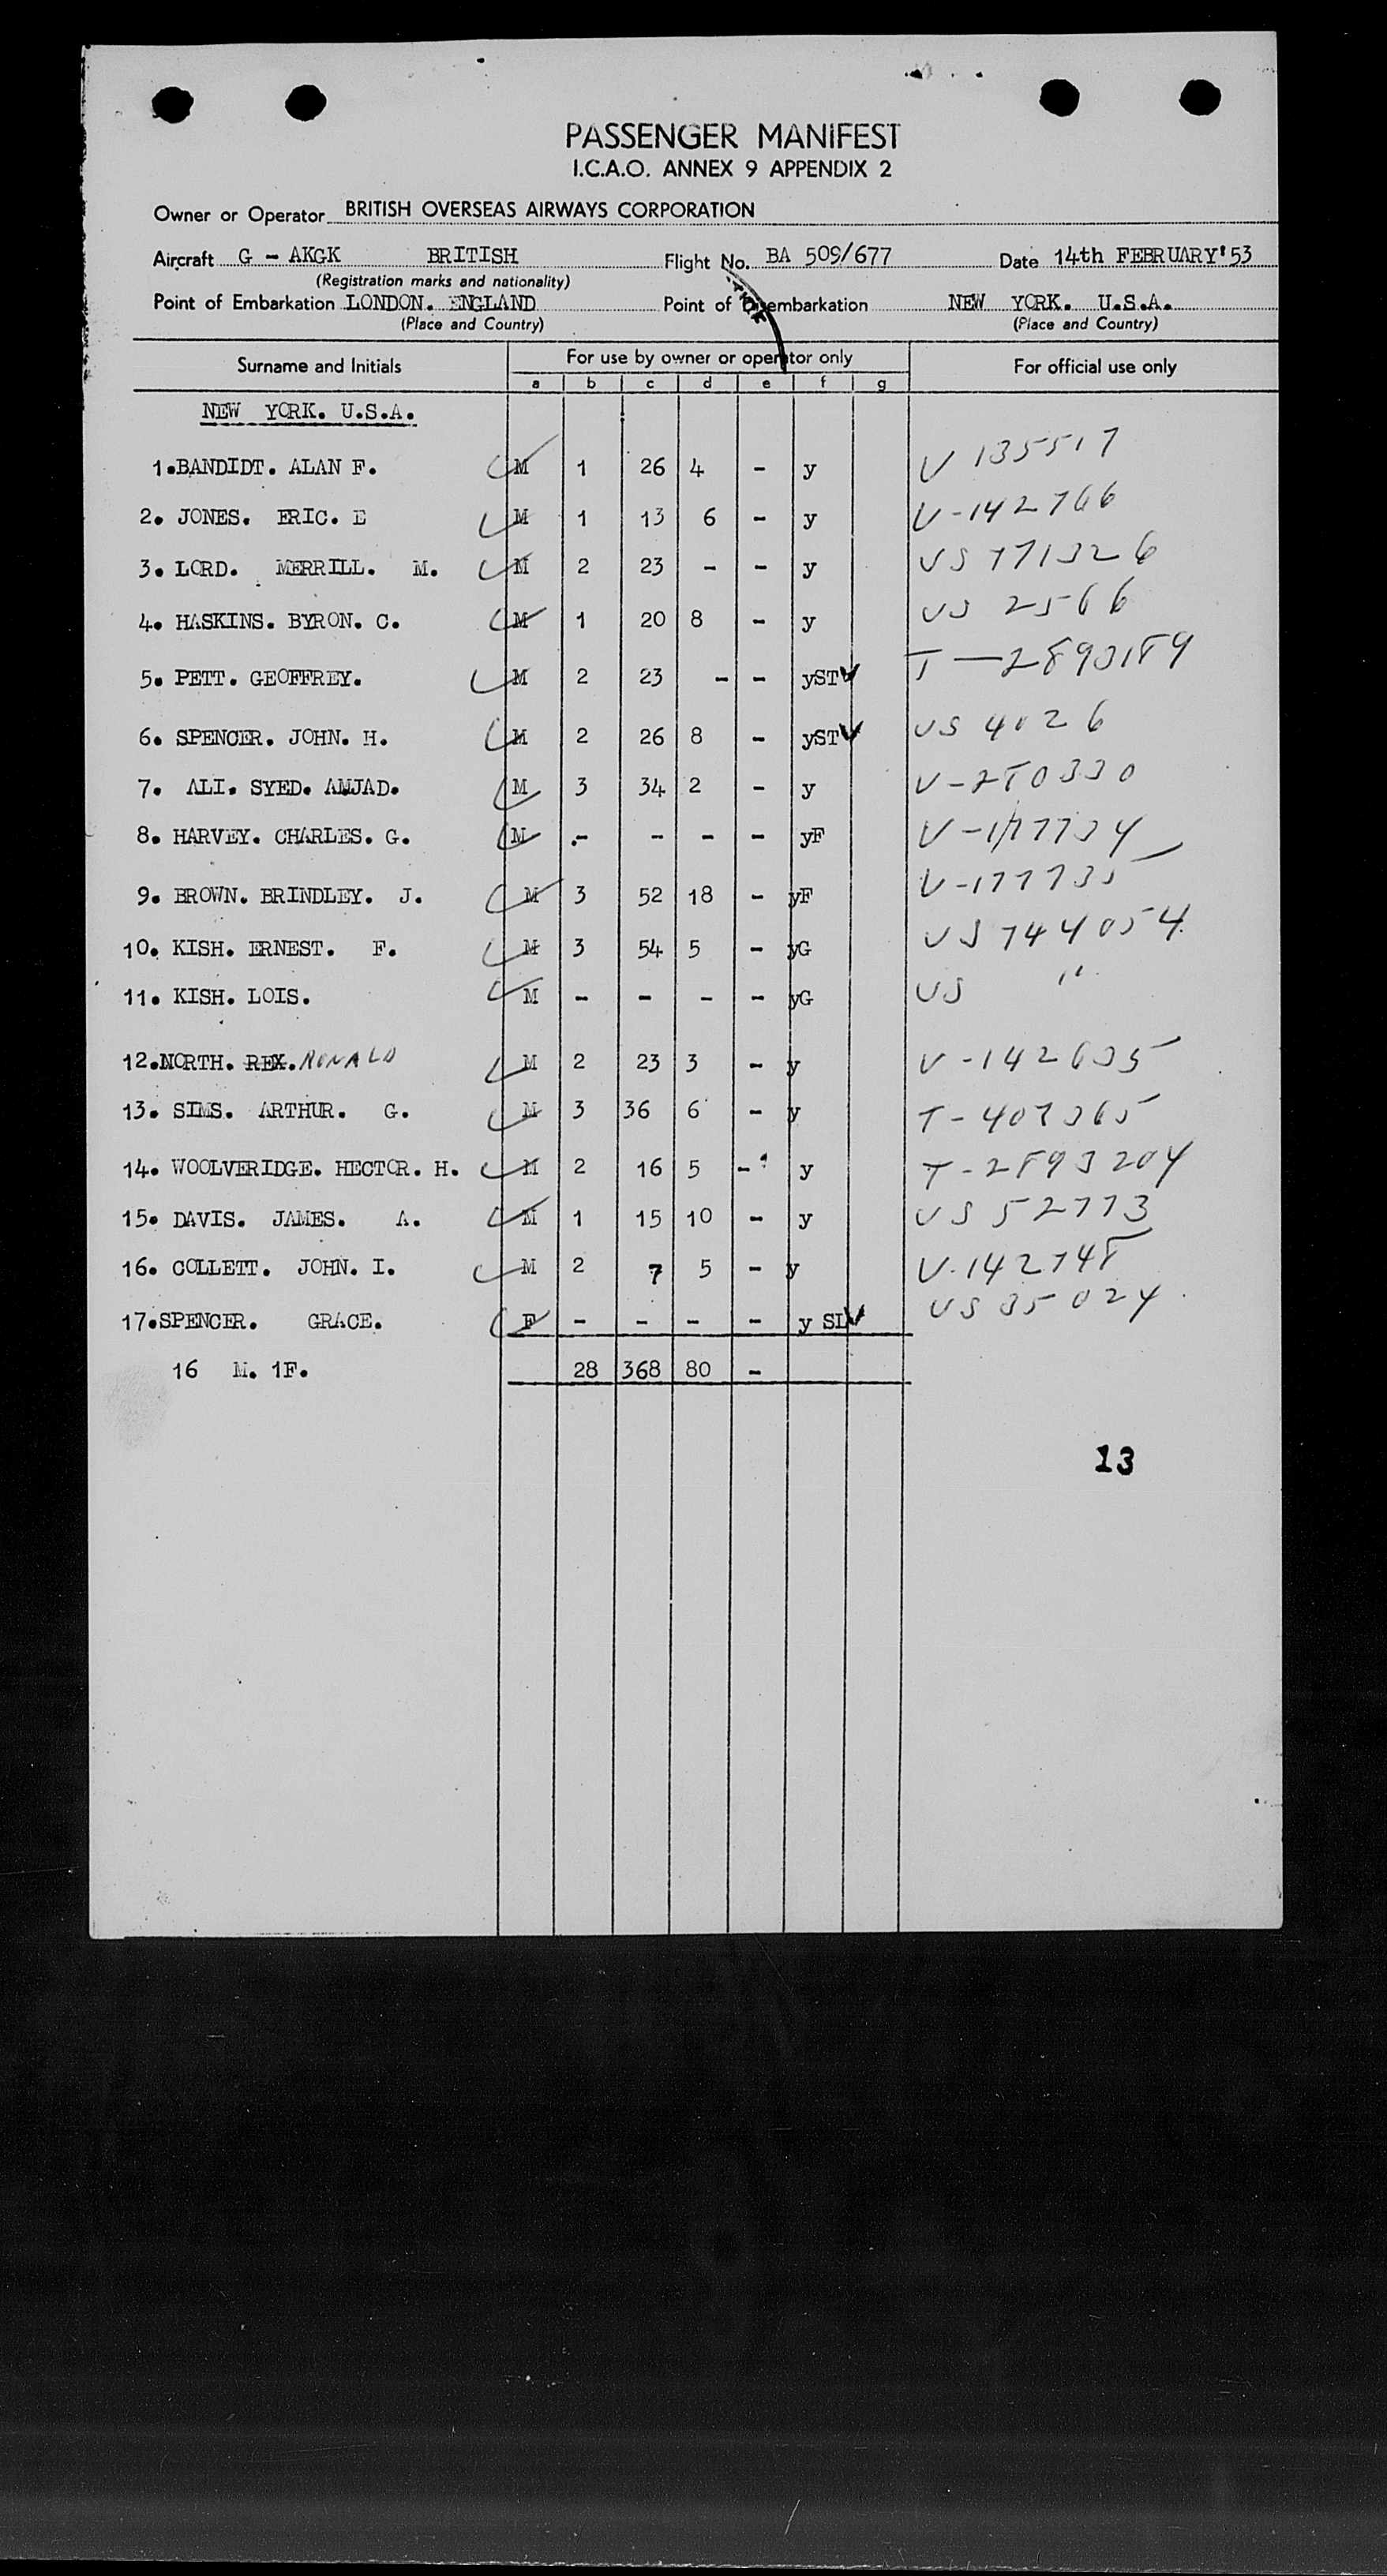 PASSENGER MANIFEST
I.C.A.O. ANNEX 9 APPENDIX 2
Owner or Operator BRITISH OVERSEAS AIRWAYS CORPORATION
Aircraft G - AKGK BRITISH Flight No. BA 509/677 Date 14th FEBRUARY'53
(Registration marks and nationality)
Point of Embarkation LONDON. ENGLAND Point of Disembarkation NEW YORK. U.S.A.
(Place and Country) (Place and Country)
Surname and Initials For use by owner or operator only For official use only
a b c d e f g
NEW YORK. U.S.A.
1.BANDIDT. ALAN F. M 1 26 4 - y V 135517
2. JONES. ERIC. E M 1 13 6 - y V-142766
3. LORD. MERRILL. M. M 2 23 - - y US 771326
4. HASKINS. BYRON. C. M 1 20 8 - y US 2566
5. PETT. GEOFFREY. M 2 23 - - yST T-2893189
6. SPENCER. JOHN. H. M 2 26 8 - yST US 4026
7. ALI. SYED. AMJAD. M 3 34 2 - y V-280330
8. HARVEY. CHARLES. G. M .- - - - yF V-177734
9. BROWN. BRINDLEY. J. M 3 52 18 - yF V-177735
10. KISH. ERNEST. F. M 3 54 5 - yG US 744054
11. KISH. LOIS. M - - - - yG US "
12.NORTH. REX. RONALD M 2 23 3 - y V-142635
13. SIMS. ARTHUR. G. M 3 36 6 - y T-407365
14. WOOLVERIDGE. HECTOR. H. M 2 16 5 - y T-2893204
15. DAVIS. JAMES. A. M 1 15 10 - y US 52773
16. COLLETT. JOHN. I. M 2 7 5 - y V.142748
17.SPENCER. GRACE. F - - - - y SL US 35024
16 M. 1F. 28 368 80 -
13